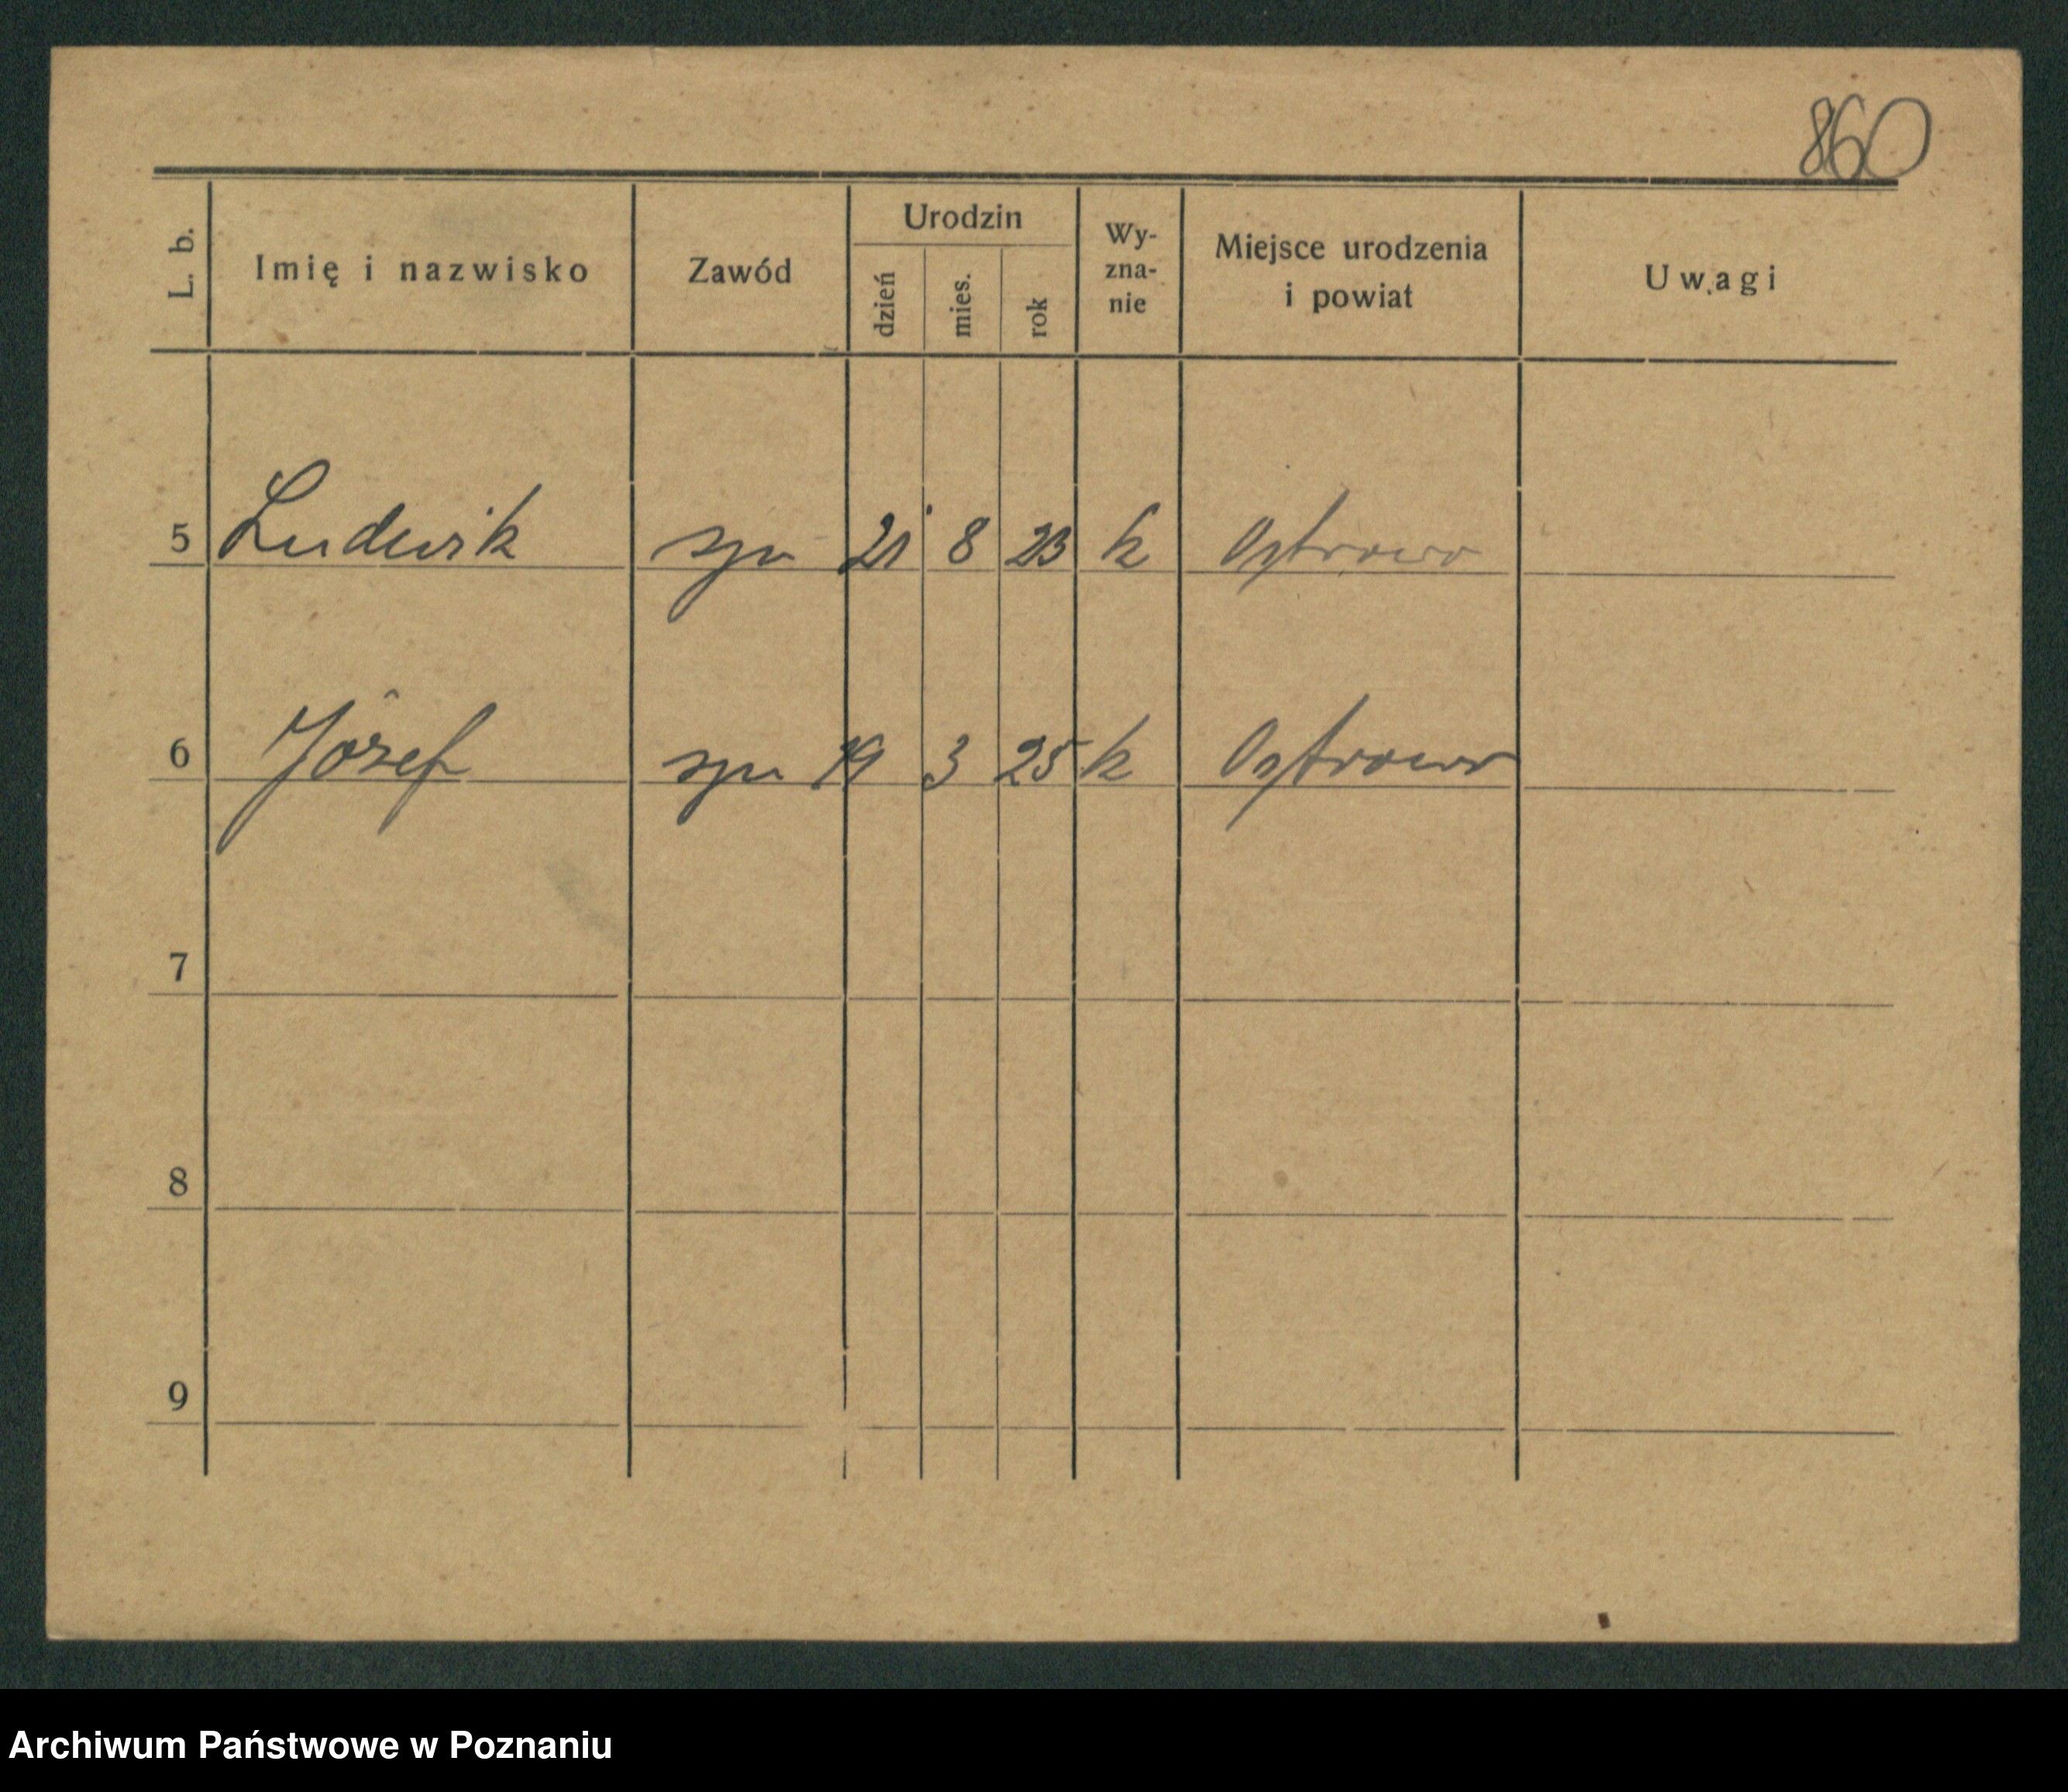 860
L. b. Imię i nazwisko Zawód Urodzin dzień mies. rok Wy-zna-nie Miejsce urodzenia i powiat Uwagi
5 Ludwik syn 21 8 23 k Ostrowo
6 Józef syn 19 3 25 k Ostrowo
7
8
9
Archiwum Państwowe w Poznaniu